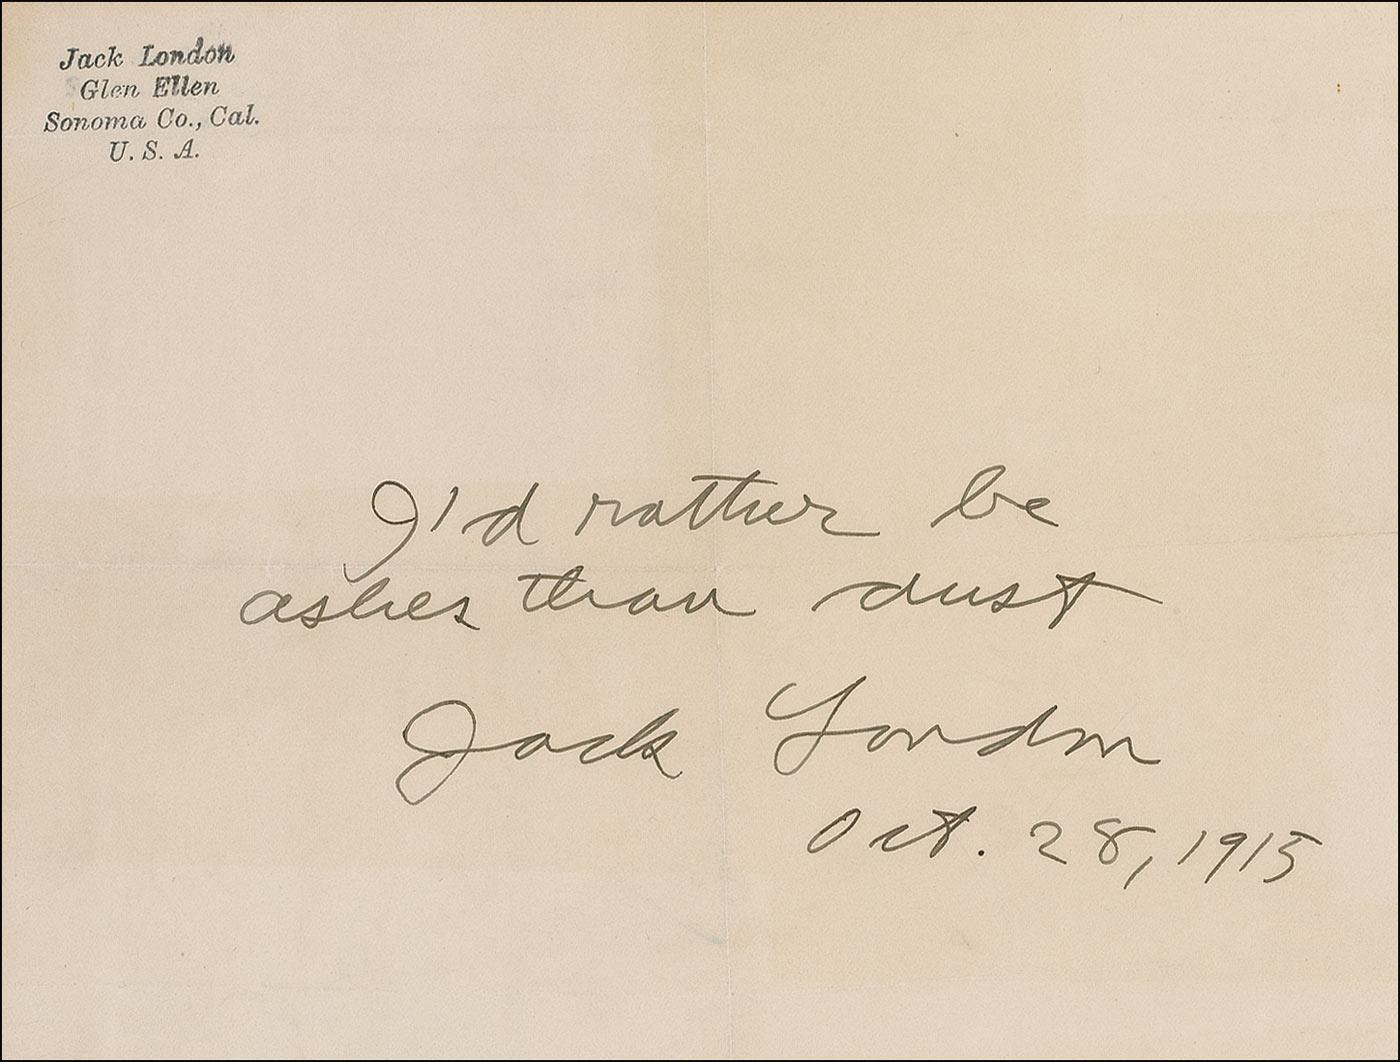 Jack London
Glen Ellen
Sonoma Co., Cal.
U. S. A.
I'd rather be
ashes than dust
Jack London
Oct. 28, 1915